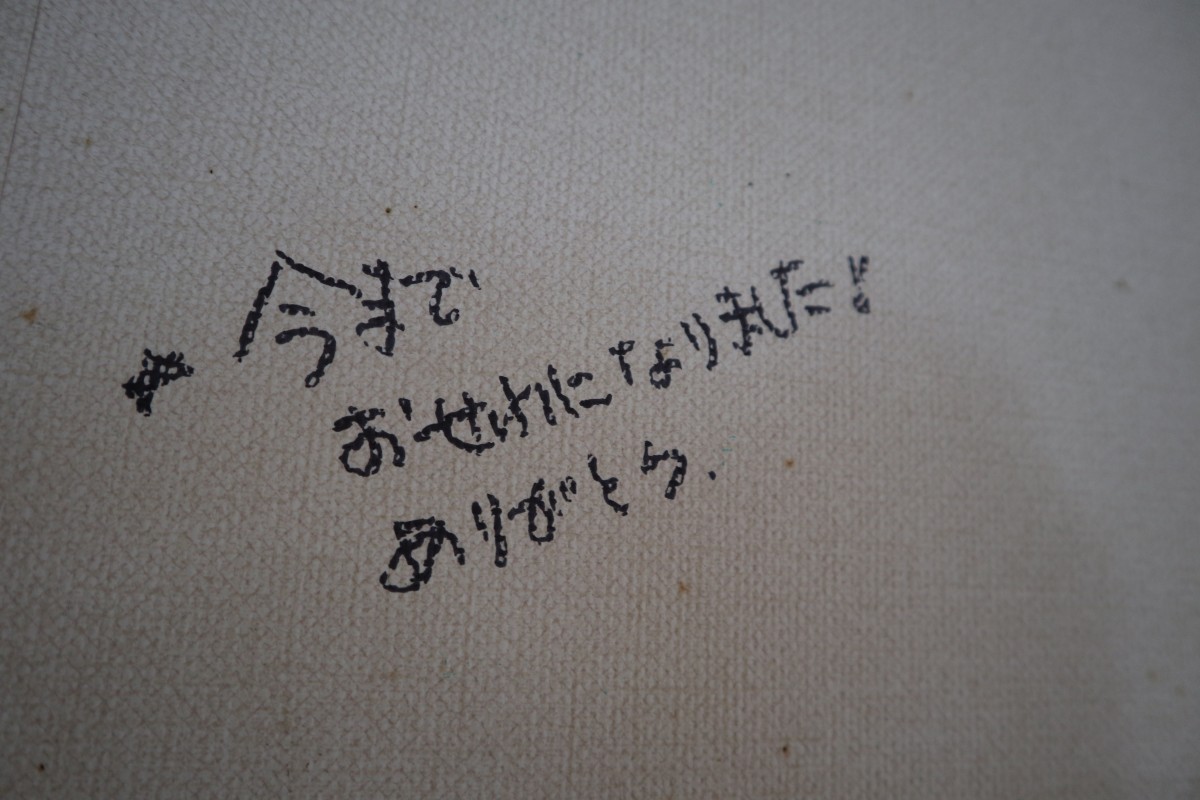 今まで
おせわになりました!
ありがとう.